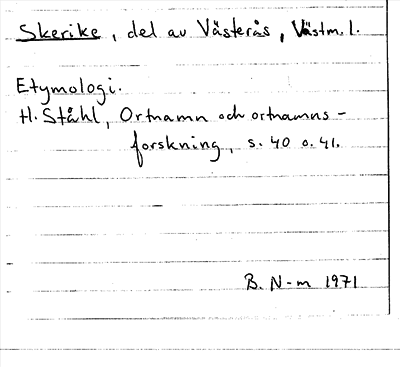 Skerike, del av Västerås, Västm. l.
Etymologi.
H. Ståhl, Ortnamn och ortnamns-
forskning, s. 40 o. 41.
B. N-m 1971